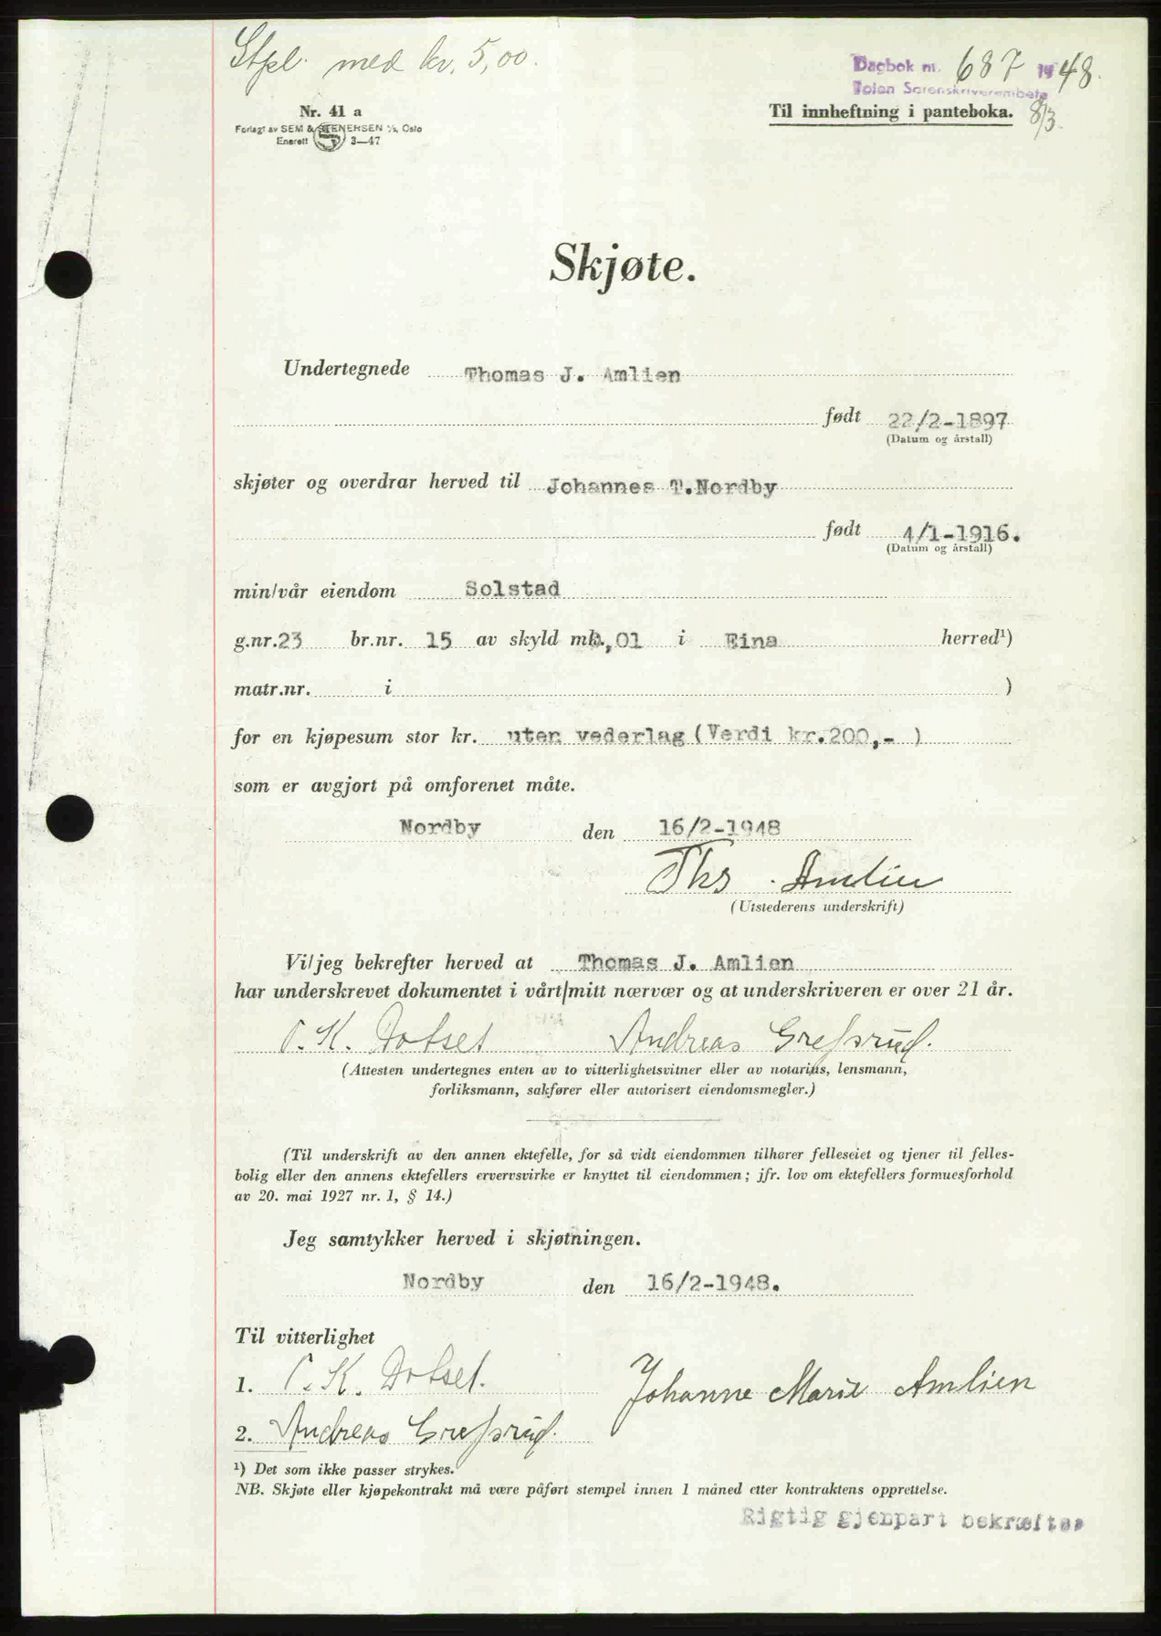 Stpl. med kr. 5,00.
Dagbok nr. 687 1948.
Toten Sorenskriverembete
Nr. 41 a
Til innheftning i panteboka. 8/3
Forlagt av SEM & STENERSEN A/S, Oslo
Enerett 3—47
Skjøte.
Undertegnede Thomas J. Amlien
født 22/2-1897
(Datum og årstall)
skjøter og overdrar herved til Johannes T.Nordby
født 4/1-1916.
(Datum og årstall)
min/vår eiendom Solstad
g.nr.23 br.nr. 15 av skyld mk.0,01 i Eina herred¹)
matr.nr. i )
for en kjøpesum stor kr. uten vederlag (Verdi kr.200,- )
som er avgjort på omforenet måte.
Nordby den 16/2-1948
Ths. Amlien
(Utstederens underskrift)
Vi/jeg bekrefter herved at Thomas J. Amlien
har underskrevet dokumentet i vårt/mitt nærvær og at underskriveren er over 21 år.
P. K. Dotset Andreas Grefsrud.
(Attesten undertegnes enten av to vitterlighetsvitner eller av notarius, lensmann,
forliksmann, sakfører eller autorisert eiendomsmegler.)
(Til underskrift av den annen ektefelle, for så vidt eiendommen tilhører felleseiet og tjener til felles-
bolig eller den annens ektefellers ervervsvirke er knyttet til eiendommen; jfr. lov om ektefellers formuesforhold
av 20. mai 1927 nr. 1, § 14.)
Jeg samtykker herved i skjøtningen.
Nordby den 16/2-1948.
Til vitterlighet
1. P. K. Dotset.
Johanne Marie Amlien
2. Andreas Grefsrud.
¹) Det som ikke passer strykes.
NB. Skjøte eller kjøpekontrakt må være påført stempel innen 1 måned etter kontraktens opprettelse.
Rigtig gjenpart bekræftes